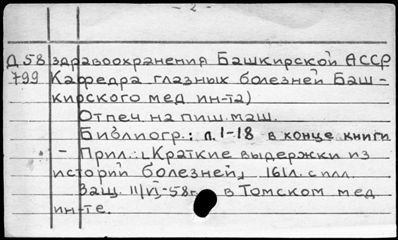 - 2 -
Д 58 здравоохранения Башкирской АССР
799 Кафедра глазных болезней Баш-
кирского мед ин-та)
Отпеч. на пиш. маш.
Библиогр.: л. 1-18 в конце книги
- Прил.: "Краткие выдержки из
историй болезней" 161л. с илл.
Защ. 11/VI-58г. в Томском мед
ин-те.